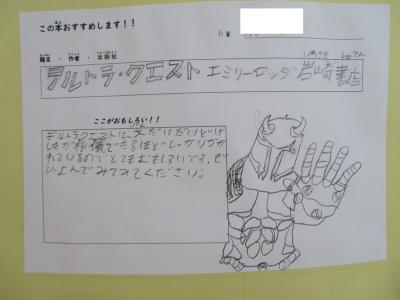 この本おすすめします！！
題名・作者・出版社
いわさき しょてん
デルトラ・クエスト エミリーロッダ 岩崎書店
ここがおもしろい！！
デルトラクエストは、文だけだけどけ
しきが想像できるほどしっかりかか
れているのでとてもおもしろいです。ぜ
ひよんでみてみてください。